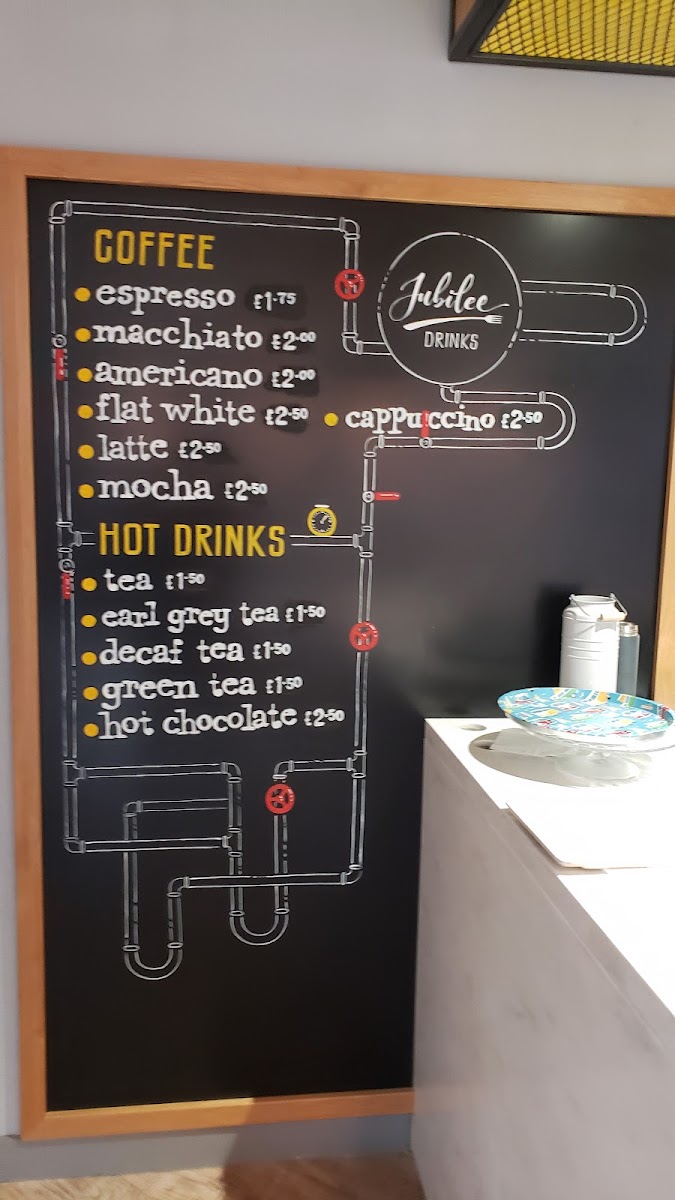 Jubilee
DRINKS
COFFEE
espresso £1.75
macchiato £2.00
americano £2.00
flat white £2.50
cappuccino £2.50
latte £2.50
mocha £2.50
HOT DRINKS
tea £1.50
earl grey tea £1.50
decaf tea £1.50
green tea £1.50
hot chocolate £2.50